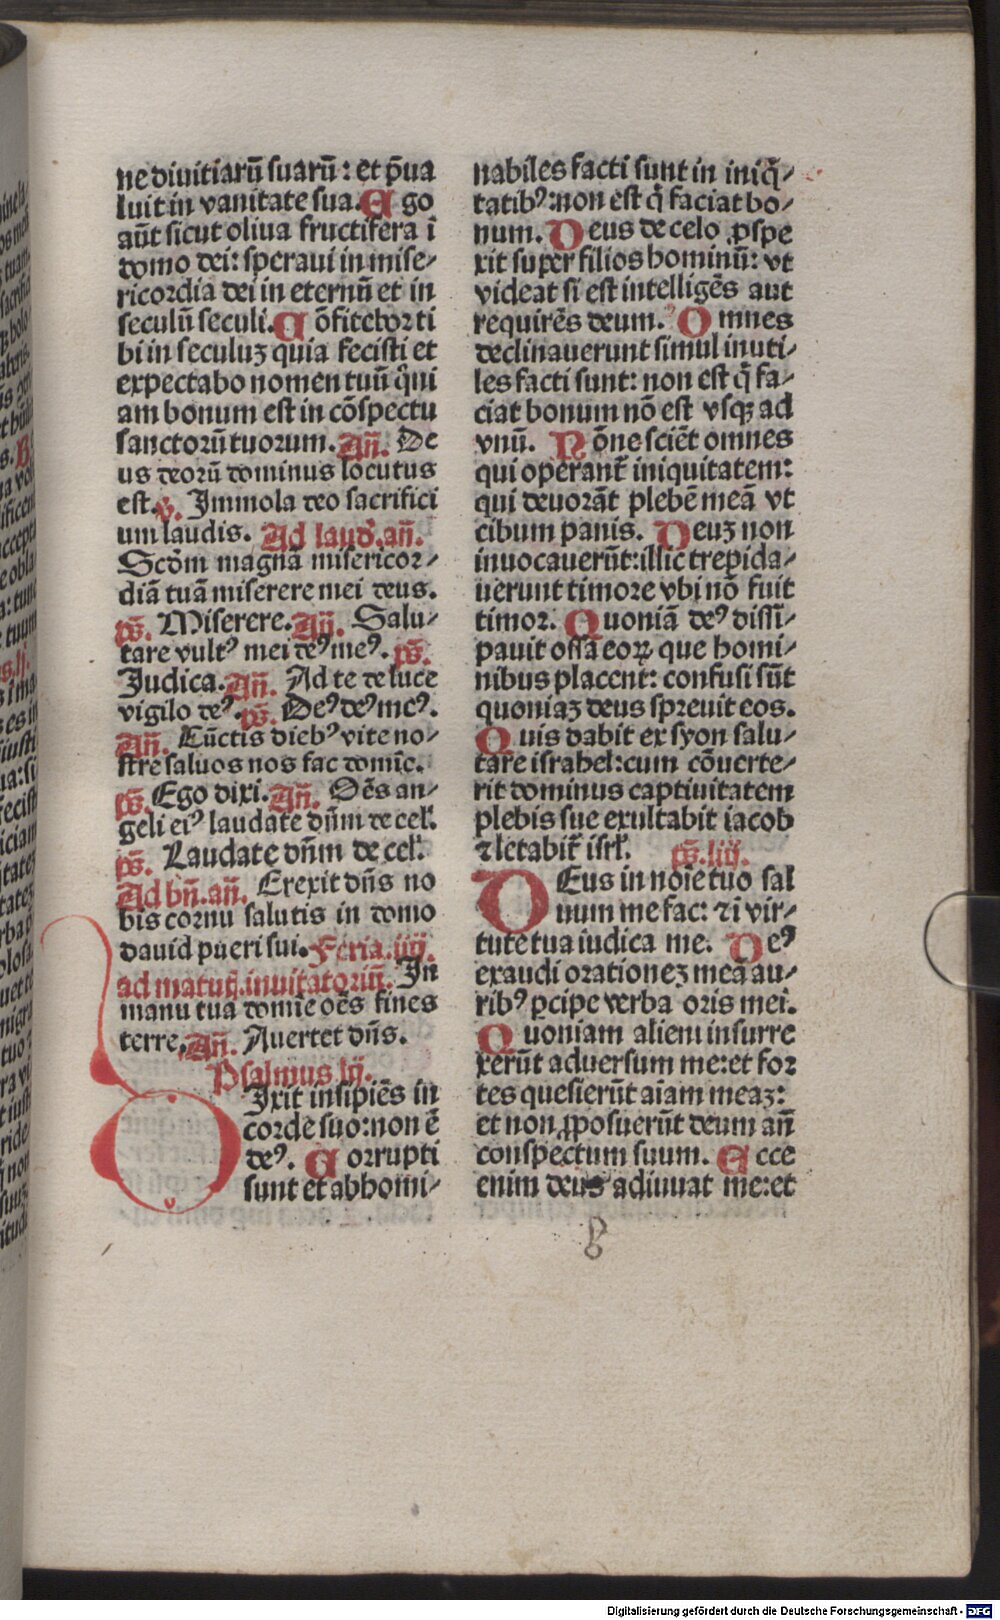 ne divitiarū suarū: et p̄ua
luit in vanitate sua. Ego
aūt sicut oliua fructifera ī
domo dei: speraui in mise⸗
ricordia dei in eternū et in
seculū seculi. Cōfitebor ti
bi in seculuꝫ quia fecisti et
expectabo nomen tuū qm̄i
am bonum est in cōspectu
sanctorū tuorum. Añ. De
us deorū dominus locutus
est. ꝟ. Immola deo sacrifici
um laudis. Ad laud. añ.
Scd̄m magnā misericor⸗
diā tuā miserere mei deus.
p̄s. Miserere. Añ. Salu⸗
tare vultꝰ mei deꝰ meꝰ. p̄s.
Judica. Añ. Ad te de luce
vigilo deꝰ. p̄s. Deꝰ deꝰ meꝰ.
Añ. Cūctis diebꝰ vite no⸗
stre saluos nos fac domīe.
p̄s. Ego dixi. Añ. Oēs an⸗
geli eiꝰ laudate dn̄m de cel'.
p̄s. Laudate dn̄m de cel'.
Ad bn̄. añ. Erexit dn̄s no
bis cornu salutis in domo
dauid pueri sui. Feria .iiij.
ad matuṭ. inuitatoriū. In
manu tua domīe oēs fines
terre. Añ. Auertet dn̄s.
Psalmus lij.
Dixit insipiēs in
corde suo: non ē
deꝰ. Corrupti
sunt et abhomi⸗
nabiles facti sunt in iniq̄⸗
tatibꝰ: non est q̄ faciat bo⸗
num. Deus de celo ꝓspe
xit super filios hominū: vt
videat si est intelligēs aut
requirēs deum. Omnes
declinauerunt simul inuti⸗
les facti sunt: non est q̄ fa⸗
ciat bonum nō est vsqꝫ ad
vnū. Nōne sciēt omnes
qui operant̄ iniquitatem:
qui deuorāt plebē meā vt
cibum panis. Deuꝫ non
inuocauerūt: illic trepida⸗
uerunt timore vbi nō fuit
timor. Quoniā deꝰ dissi⸗
pauit ossa eoꝝ que homi⸗
nibus placent: confusi sūt
quoniaꝫ deus spreuit eos.
Quis dabit ex syon salu⸗
tare israhel: cum cōuerte⸗
rit dominus captiuitatem
plebis sue exultabit iacob
⁊ letabit̄ isrl'. p̄s. liij.
Deus in noīe tuo sal
uum me fac: ⁊ ī vir⸗
tute tua iudica me. Deꝰ
exaudi orationeꝫ meā au⸗
ribꝰ ꝑcipe verba oris mei.
Quoniam alieni insurre
xerūt aduersum me: et for
tes quesierūt aīam meaꝫ:
et non ꝓposuerūt deum añ
conspectum suum. Ecce
enim deus adiuuat me: et
Digitalisierung gefördert durch die Deutsche Forschungsgemeinschaft - DFG